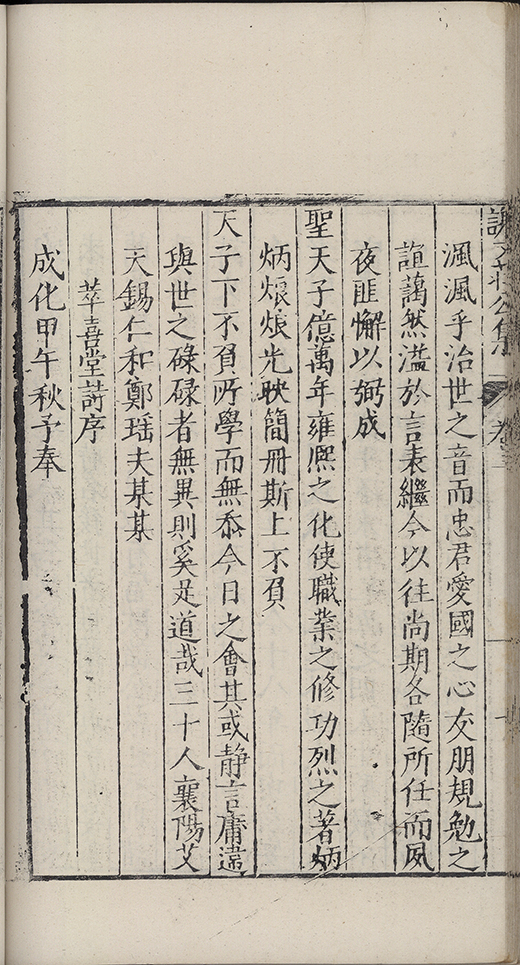 謝文莊公集 卷三
渢渢乎治世之音而忠君愛國之心友朋規勉之
誼藹然溢於言表繼今以往尚期各隨所任而夙
夜匪懈以弼成
聖天子億萬年雍熈之化使職業之修功烈之著炳
炳烺烺光映簡冊斯上不負
天子下不負所學而無忝今日之會其或靜言庸違
與世之碌碌者無異則奚足道哉三十人襄陽艾
天錫仁和鄭瑶夫某某
萃喜堂詩序
成化甲午秋予奉